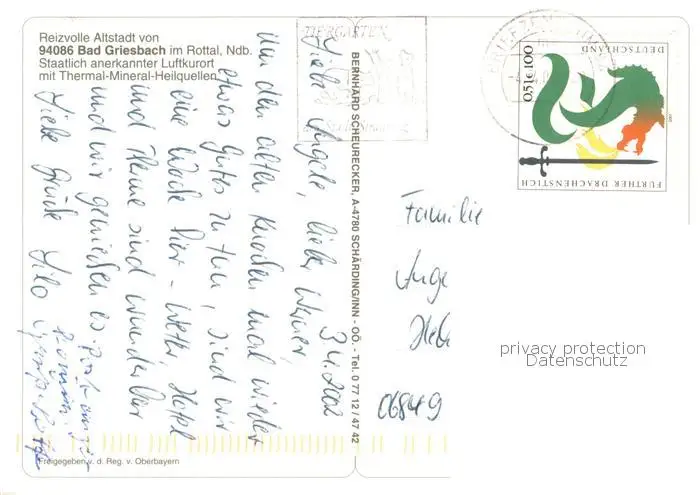 Reizvolle Altstadt von
94086 Bad Griesbach im Rottal, Ndb.
Staatlich anerkannter Luftkurort
mit Thermal-Mineral-Heilquellen
3.4.2002
Liebe Angela, lieber Werner,
um den alten Knochen mal wieder
etwas Gutes zu tun, sind wir
eine Woche hier - Wetter, Hotel
und Therme sind wunderbar
und wir genießen es.
Liebe Grüße
BERNHARD SCHEURECKER, A-4780 SCHÄRDING/INN - OÖ. - Tel. 0 77 12 / 47 42
Freigegeben v. d. Reg. v. Oberbayern
TIERGARTEN
BRIEFZENTRUM
DEUTSCHLAND
0,51€ 100
FURTHER DRACHENSTICH
Familie
06849
privacy protection
Datenschutz